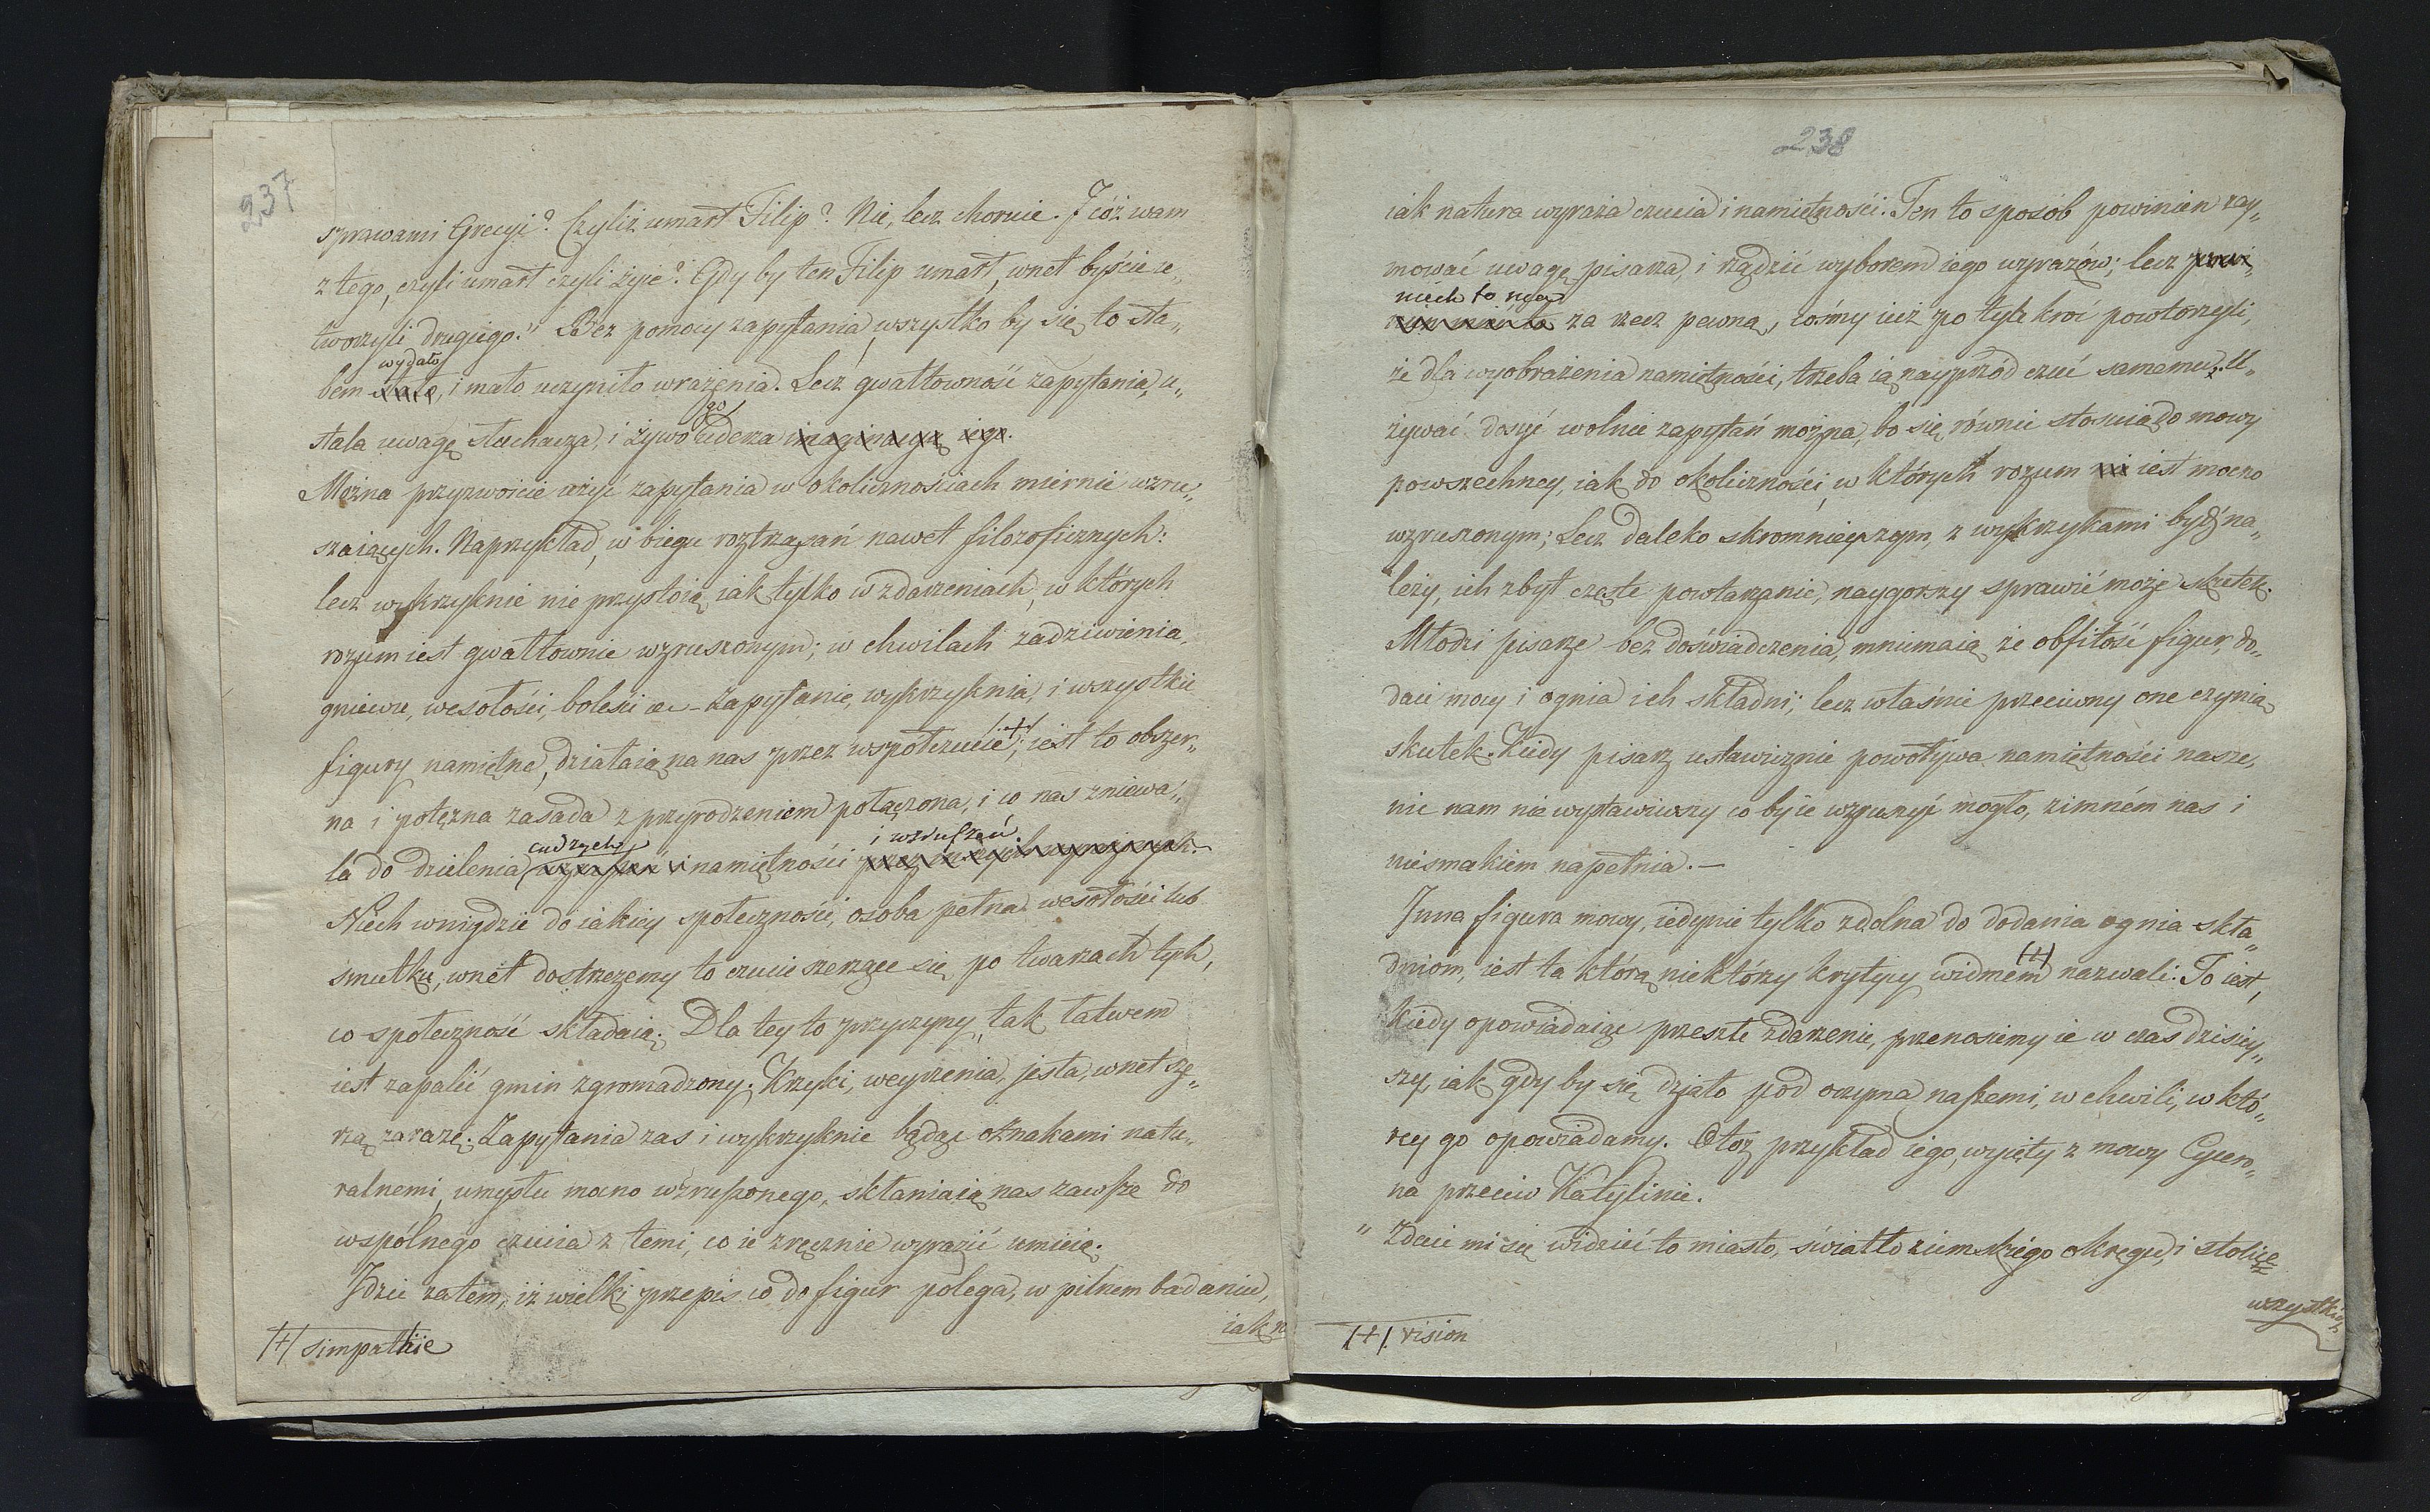 237
sprawami Grecyi? Czyliż umarł Filip? Nie, lecz choruie. I cóż wam
z tego, czyli umarł czyli żyie? Gdy by ten Filip umarł, wnet byście ze„
tworzyli drugiego." Bez pomocy zapytania wszystko by się to sła„
wydało
bem stało, i mało uczyniło wrażenia. Lecz gwałtowność zapytania, u„
go
stala uwagę słuchacza, i żywo uderza imaginacyą iego.
Można przyzwoicie użyć zapytania w okolicznościach miernie wzru„
szaiących. Naprzykład, w biegu roztrząsań nawet filozoficznych:
lecz wykrzyknie nie przystoią iak tylko w zdarzeniach, w których
rozum iest gwałtownie wzruszonym; w chwilach zadziwienia,
gniewu, wesołości, boleści etc – Zapytanie, wykrzyknia, i wszystkie
figury namiętne, działaią na nas przez wspołczucie /+/; iest to obszer„
na i potężna zasada z przyrodzeniem połączona, i co nas zniewa„
cudzych i wzruszeń
la do dzielenia wzruszeń i namiętności przez innych
Niech wnijdzie do iakiey społeczności, osoba pełna wesołości lub
smutku, wnet dostrzeżemy to czucie szerzące się po twarzach tych,
co społeczność składaią. Dla tey to przyczyny, tak łatwem
iest zapalić gmin zgromadzony. Krzyki, weyrzenia, jesta, wnet sze„
rzą zarazę. Zapytania zas i wykrzyknie bądąc oznakami natu„
ralnemi, umysłu mocno wzruszonego, skłaniaią nas zawsze do
wspólnego czucia z temi, co ie zręcznie wyrazić umieią.
Idzie zatem, iż wielki przepis co do figur polega, w pilnem badaniu,
iak n
/+/ simpathie
238
iak natura wyraża czucia i namiętności. Ten to sposób powinien zay„
mować uwagę pisarza, i rządzić wyborem iego wyrazów; lecz powi„
niech to uyd
za rzecz pewną, cośmy iuż po tyle kroć powtorzyli,
że dla wyobrażenia namiętności, trzeba ią nayprzód czuć samemu. U„
żywać dosyć wolnie zapytań można, bo się równie stosuią do mowy
powszechney, iak do okoliczności, w których rozum nie iest mocno
wzruszonym; Lecz daleko skromnieyszym, z wykrzykami bydź na„
leży, ich zbyt częste powtarzanie, naygorszy sprawić może skutek.
Młodzi pisarze bez doświadczenia, mniemaią że obfitość figur, do„
daie mocy i ognia ich składni; lecz właśnie przeciwny one czynią
skutek. Kiedy pisarz ustawicznie powoływa namiętności nasze,
nic nam nie wystawiwszy co by ie wzruszyć mogło, zimném nas i
niesmakiem napełnia. –
Inna figura mowy, iedynie tylko zdolna do dodania ognia skła„
dniom, iest ta którą niektórzy krytycy widmem /+/ nazwali. To iest,
kiedy opowiadaiąc przeszłe zdarzenie, przenosiemy ie w czas dzisiey„
szy, iak gdy by się działo pod oczyma naszemi, w chwili, w któ„
rey go opowiadamy. Otoz przykład iego, wyięty z mowy Cycero„
na przeciw Katylinie.
„ Zdaie mi się widzieć to miasto, światło ziemskiego okręgu, i stolicę
wszystkich
/+/. vision